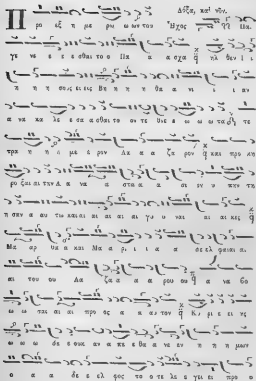 Δόξα, καὶ νῦν.
Π ρο εξ η με ρω ω ων του Ἦχος Πα.
γε νε ε ε σθαι το ο Πα α α σχα ηλ θεν Ι ι
η η η σους εις Βη η η η θα α νι ι ι αν
α να κα λε ε σα α σθαι το ον τε θνε ε ω ω ω τα τε
τρα η η η με ε ρον Λα α α ζα ρον και προ κη
ξαι την Α να α α στα α α σι
η σαν α αυ τω και αι αι αι αι γυ υ ναι αι αι κες
Μα αρ θα α και Μα α ρι ι ι α α δε ελ φαι αι αι
αι του ου Λα ζα α α α ρου ου α να βο
ω ω σαι αι προς α α αυ τον Κυ ρι ε ει
ω ω ω δε ε ουκ αν α πε ε θα νε εν η η η μων
ο α α δε ε ελ φος το ο τε λε ε γει ει προ ο